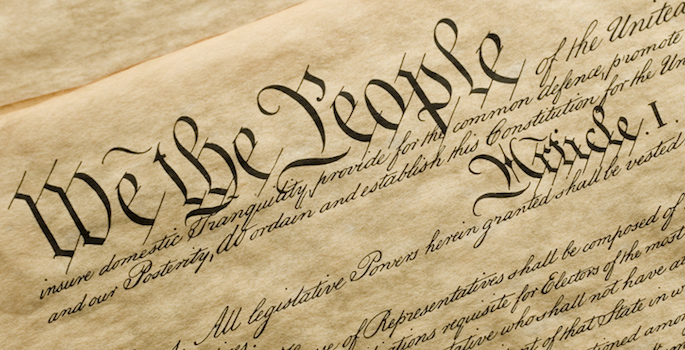 We the People of the United
insure domestic Tranquility, provide for the common defence, promote
and our Posterity, do ordain and establish this Constitution for the Un
Article. I.
1. All legislative Powers herein granted shall be vested
of Representatives shall be composed of
ations requisite for Electors of the most
tative who shall not have
of that State in w
tioned amon